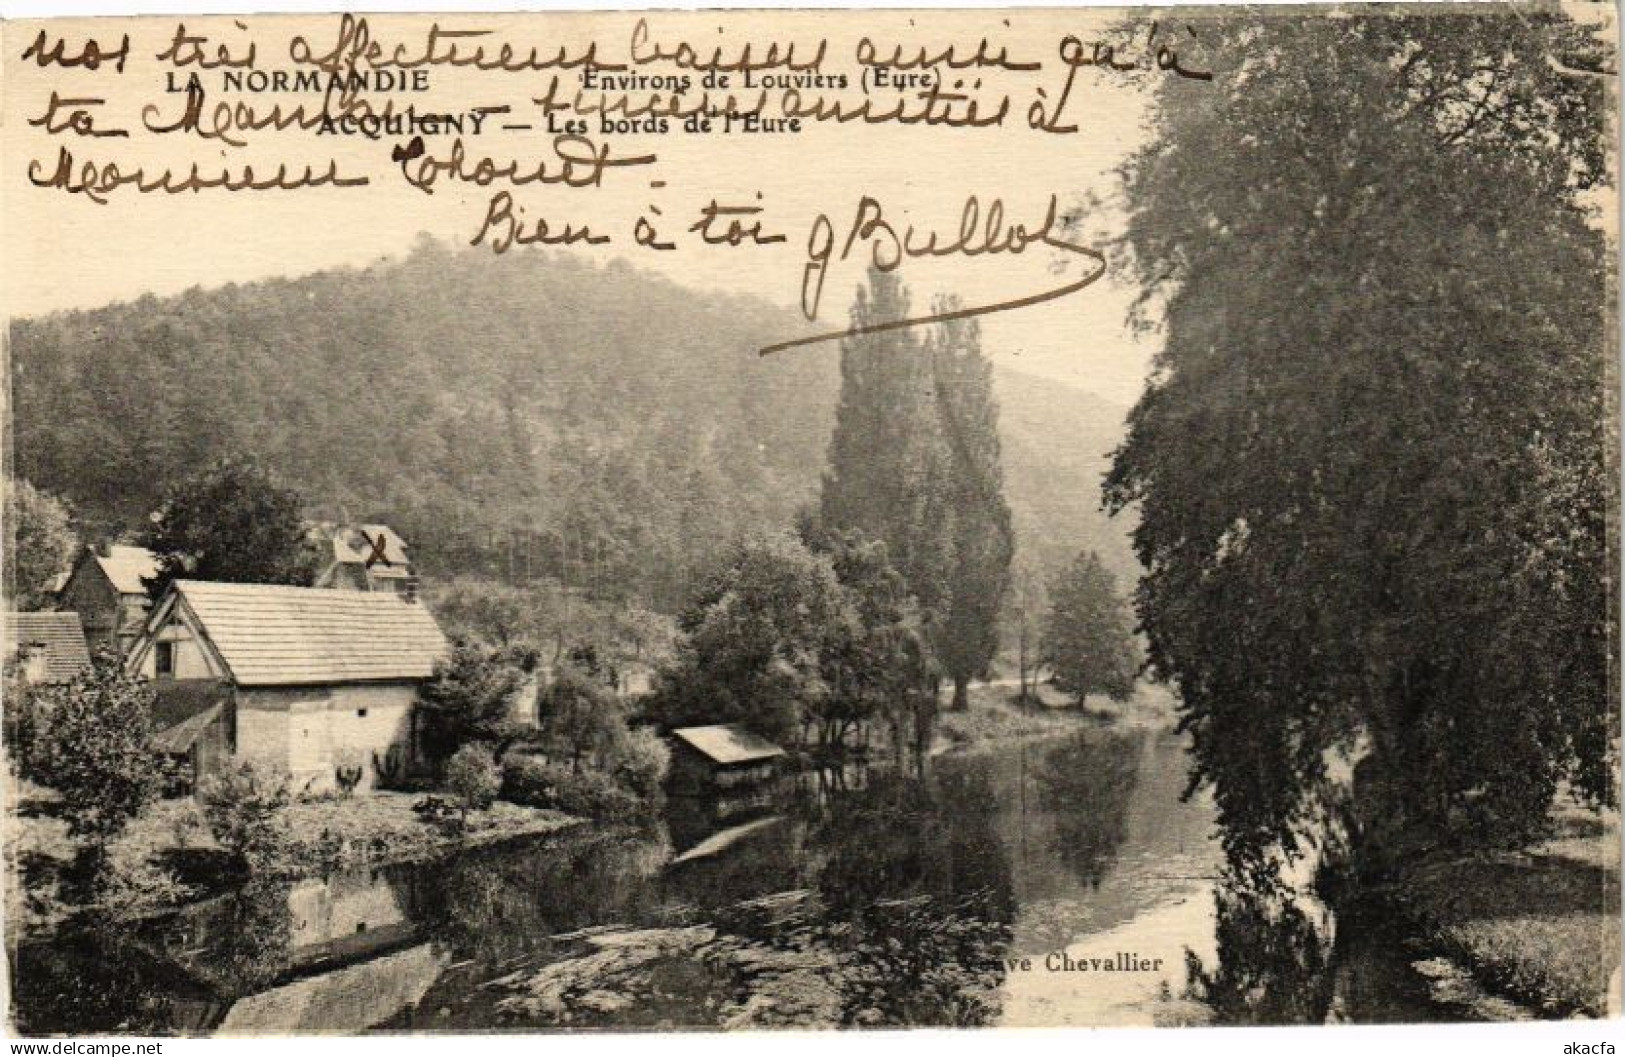 nos très affectueux baisers ainsi qu'à
LA NORMANDIE Environs de Louviers (Eure)
ta Maman sincères amitiés à
ACQUIGNY — Les bords de l'Eure
Monsieur Chouet.
Bien à toi g Bullot
X
Veuve Chevallier
akacfa
delcampe.net